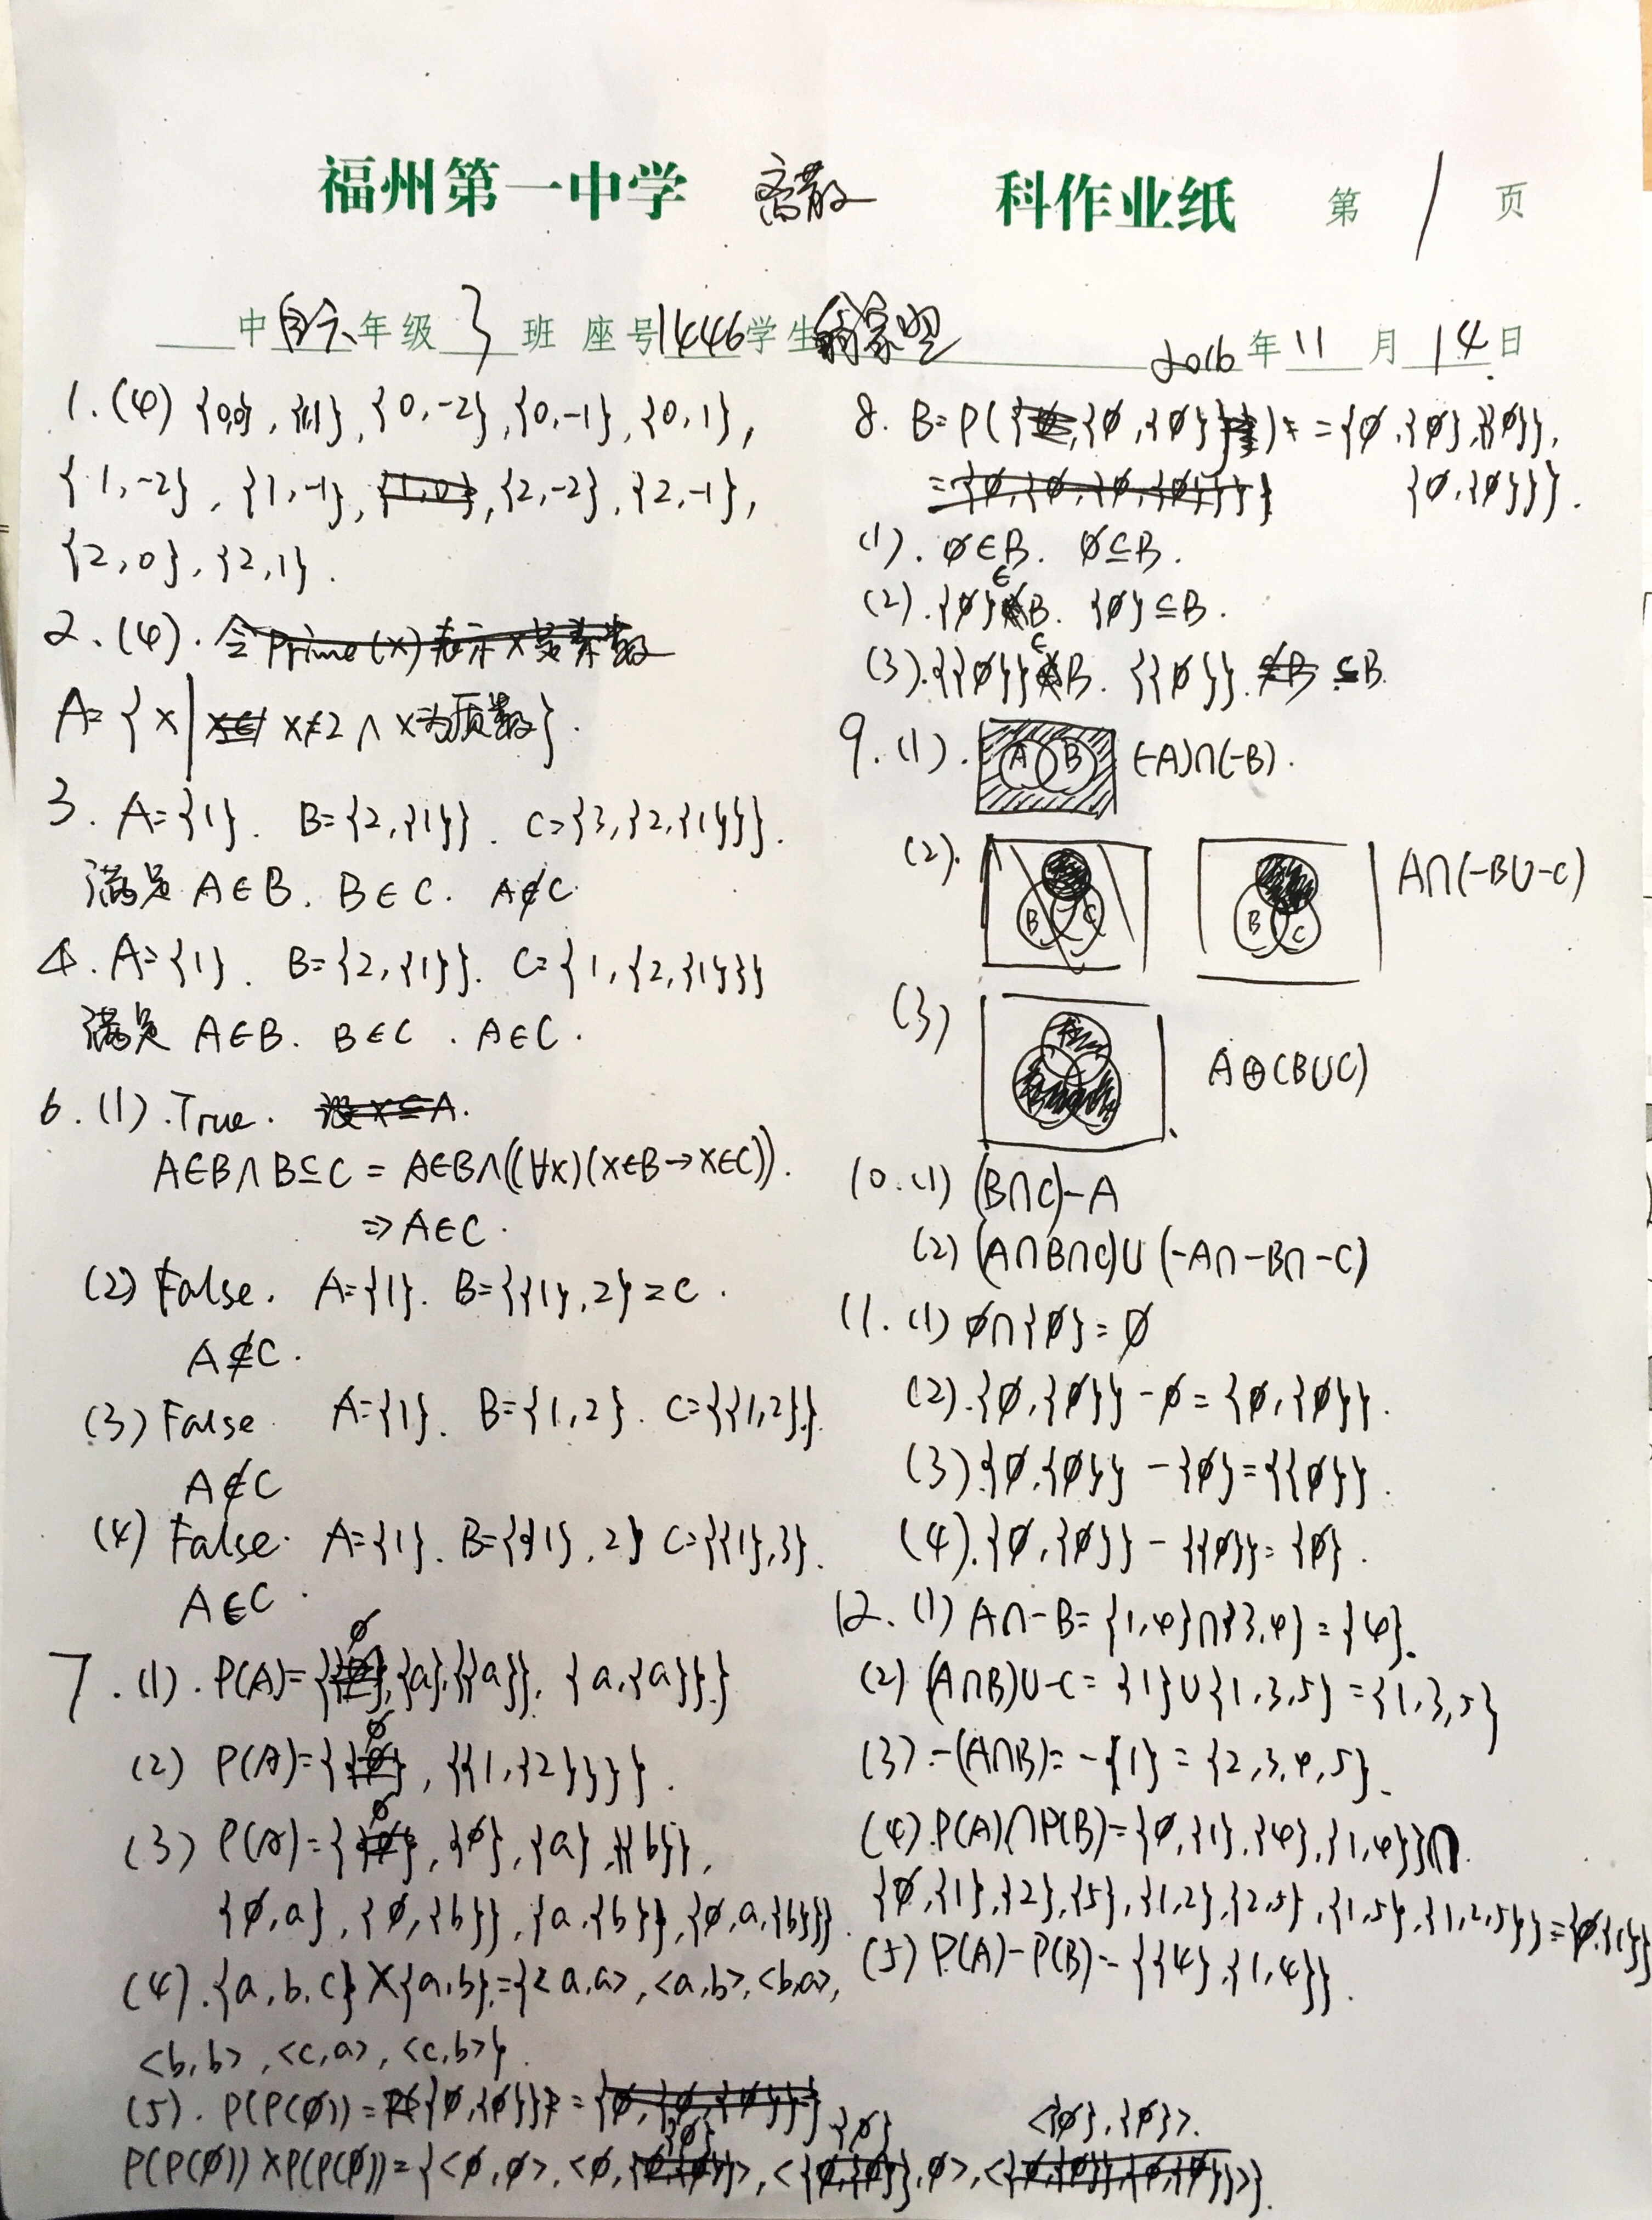 福州第一中学 离散 科作业纸 第 1 页
中 年级 3 班 座号 1446 学生 翁家 2016 年 11 月 14 日
1. (4) {0,0}, {1,1}, {0,-2}, {0,-1}, {0,1},
{1,-2}, {1,-1}, {2,-2}, {2,-1},
{2,0}, {2,1}.
2. (4).
A={x| x≠2 ∧ x为质数}.
3. A={1}. B={2,{1}}. C={3,{2,{1}}}.
满足 A∈B. B∈C. A∉C.
4. A={1}. B={2,{1}}. C={1,{2,{1}}}
满足 A∈B. B∈C. A∈C.
6. (1). True.
A∈B∧B⊆C = A∈B∧((∀x)(x∈B→x∈C)).
⇒ A∈C.
(2) False. A={1}. B={{1},2}=C.
A⊈C.
(3) False. A={1}. B={1,2}. C={{1,2}}.
A∉C
(4) False. A={1}. B={{1},2} C={{1},3}.
A∈C.
7. (1). P(A)={∅,{a},{{a}},{a,{a}}.}
(2) P(A)={∅,{{1,{2}}}}.
(3) P(A)={∅,{∅},{a},{{b}},
{∅,a},{∅,{b}},{a,{b}},{∅,a,{b}}}.
(4). {a,b,c}×{a,b}={<a,a>,<a,b>,<b,a>,
<b,b>,<c,a>,<c,b>}.
(5). P(P(∅))={∅,{∅}}
P(P(∅))×P(P(∅))={<∅,∅>,<∅,{∅}>,<{∅},∅>,<{∅},{∅}>}.
8. B=P({∅,{∅}})={∅,{∅},{{∅}},
{∅,{∅}}}.
(1). ∅∈B. ∅⊆B.
(2). {∅}∈B. {∅}⊆B.
(3). {{∅}}∈B. {{∅}}⊆B.
9. (1). A B (-A)∩(-B).
(2). B C B C A∩(-B∪-C)
(3) A⊕(B∪C)
10. (1) (B∩C)-A
(2) (A∩B∩C)∪(-A∩-B∩-C)
11. (1) ∅∩{∅}=∅
(2). {∅,{∅}}-∅={∅,{∅}}.
(3). {∅,{∅}}-{∅}={{∅}}.
(4). {∅,{∅}}-{{∅}}={∅}.
12. (1) A∩-B={1,4}∩{3,4}={4}.
(2) (A∩B)∪-C={1}∪{1,3,5}={1,3,5}
(3) -(A∩B)=-{1}={2,3,4,5}.
(4). P(A)∩P(B)={∅,{1},{4},{1,4}}∩
{∅,{1},{2},{5},{1,2},{2,5},{1,5},{1,2,5}}={∅,{1}}
(5) P(A)-P(B)={{4},{1,4}}.